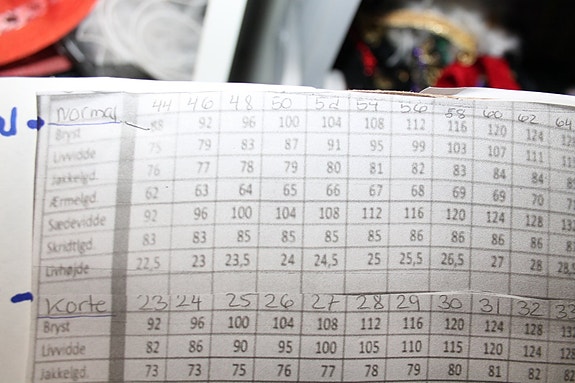 Normal 44 46 48 50 52 54 56 58 60 62 64
Bryst 88 92 96 100 104 108 112 116 120 124 128
Livvidde 75 79 83 87 91 95 99 103 107 111
Jakkelgd. 76 77 78 79 80 81 82 83 84 84
Ærmelgd. 62 63 64 65 66 67 68 69 69 70
Sædevidde 92 96 100 104 108 112 116 120 124 128
Skridtlgd. 83 83 85 85 85 85 86 86 86 87
Livhøjde 22,5 23 23,5 24 24,5 25 25,5 26,5 27 28 28,5
Korte 23 24 25 26 27 28 29 30 31 32 33
Bryst 92 96 100 104 108 112 116 120 124 128
Livvidde 82 86 90 95 100 105 110 115 120 124
Jakkelgd. 73 73 75 76 77 78 79 80 81 82 82